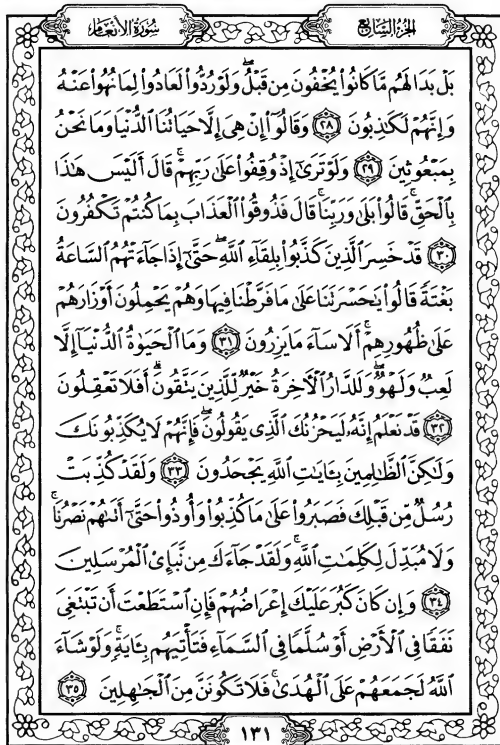 سُورَةُ الأَنْعَام
الجزء السَّابع
بَلْ بَدَا لَهُم مَّا كَانُوا۟ يُخْفُونَ مِن قَبْلُ ۖ وَلَوْ رُدُّوا۟ لَعَادُوا۟ لِمَا نُهُوا۟ عَنْهُ
وَإِنَّهُمْ لَكَـٰذِبُونَ ٢٨ وَقَالُوٓا۟ إِنْ هِىَ إِلَّا حَيَاتُنَا ٱلدُّنْيَا وَمَا نَحْنُ
بِمَبْعُوثِينَ ٢٩ وَلَوْ تَرَىٰٓ إِذْ وُقِفُوا۟ عَلَىٰ رَبِّهِمْ ۚ قَالَ أَلَيْسَ هَـٰذَا
بِٱلْحَقِّ ۚ قَالُوا۟ بَلَىٰ وَرَبِّنَا ۚ قَالَ فَذُوقُوا۟ ٱلْعَذَابَ بِمَا كُنتُمْ تَكْفُرُونَ
٣٠ قَدْ خَسِرَ ٱلَّذِينَ كَذَّبُوا۟ بِلِقَآءِ ٱللَّهِ ۖ حَتَّىٰٓ إِذَا جَآءَتْهُمُ ٱلسَّاعَةُ
بَغْتَةً قَالُوا۟ يَـٰحَسْرَتَنَا عَلَىٰ مَا فَرَّطْنَا فِيهَا وَهُمْ يَحْمِلُونَ أَوْزَارَهُمْ
عَلَىٰ ظُهُورِهِمْ ۚ أَلَا سَآءَ مَا يَزِرُونَ ٣١ وَمَا ٱلْحَيَوٰةُ ٱلدُّنْيَآ إِلَّا
لَعِبٌ وَلَهْوٌ ۖ وَلَلدَّارُ ٱلْـَٔاخِرَةُ خَيْرٌ لِّلَّذِينَ يَتَّقُونَ ۗ أَفَلَا تَعْقِلُونَ
٣٢ قَدْ نَعْلَمُ إِنَّهُۥ لَيَحْزُنُكَ ٱلَّذِى يَقُولُونَ ۖ فَإِنَّهُمْ لَا يُكَذِّبُونَكَ
وَلَـٰكِنَّ ٱلظَّـٰلِمِينَ بِـَٔايَـٰتِ ٱللَّهِ يَجْحَدُونَ ٣٣ وَلَقَدْ كُذِّبَتْ
رُسُلٌ مِّن قَبْلِكَ فَصَبَرُوا۟ عَلَىٰ مَا كُذِّبُوا۟ وَأُوذُوا۟ حَتَّىٰٓ أَتَىٰهُمْ نَصْرُنَا ۚ
وَلَا مُبَدِّلَ لِكَلِمَـٰتِ ٱللَّهِ ۚ وَلَقَدْ جَآءَكَ مِن نَّبَإِى۟ ٱلْمُرْسَلِينَ
٣٤ وَإِن كَانَ كَبُرَ عَلَيْكَ إِعْرَاضُهُمْ فَإِنِ ٱسْتَطَعْتَ أَن تَبْتَغِىَ
نَفَقًا فِى ٱلْأَرْضِ أَوْ سُلَّمًا فِى ٱلسَّمَآءِ فَتَأْتِيَهُم بِـَٔايَةٍ ۚ وَلَوْ شَآءَ
ٱللَّهُ لَجَمَعَهُمْ عَلَى ٱلْهُدَىٰ ۚ فَلَا تَكُونَنَّ مِنَ ٱلْجَـٰهِلِينَ ٣٥
١٣١